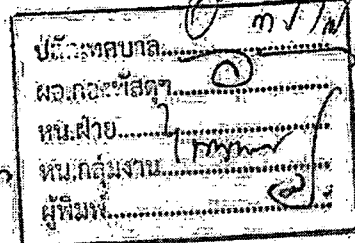 ปลัดเทศบาล
ผอ.กองพัสดุฯ
หน.ฝ่าย
หน.กลุ่มงาน
ผู้พิมพ์